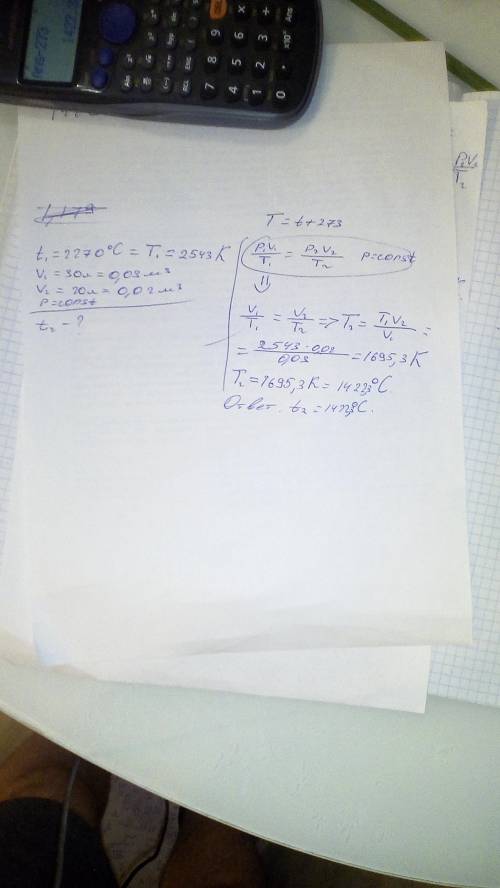 t₁ = 2270°C = T₁ = 2543 K
V₁ = 30 л = 0,03 м³
V₂ = 20 л = 0,02 м³
P = const
t₂ - ?
T = t + 273
P₁V₁/T₁ = P₂V₂/T₂ P = const
V₁/T₁ = V₂/T₂ => T₂ = T₁V₂/V₁ =
= 2543 · 0,02/0,03 = 1695,3 K
T₂ = 1695,3 K = 1422,3°C
Ответ. t₂ = 1422,3°C.
P₂V₂
T₂